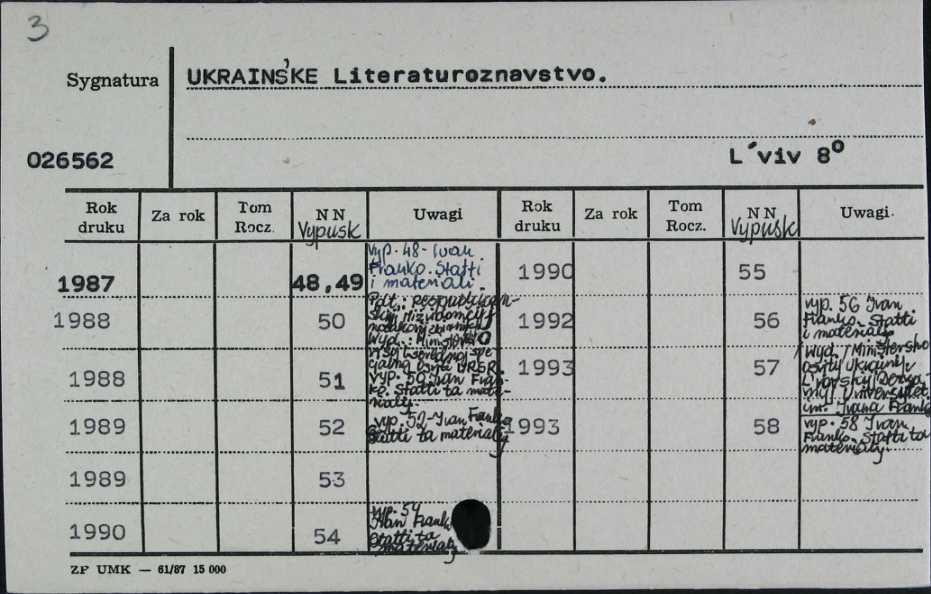 3
Sygnatura
UKRAINŚKE Literaturoznavstvo.
026562
L´viv 8º
Rok druku
Za rok
Tom Rocz.
NN Vypusk
Uwagi
Rok druku
Za rok
Tom Rocz.
NN Vypusk
Uwagi.
1987
48,49
vyp. 48 - Ivan
Franko. Statti
i materiali.
1990
55
1988
50
Pdt.: Respublikan-
Wyd.: Minist
1992
56
vyp. 56 Ivan
Franko. Statti
i materialy
1988
51
URSR.
vyp. 50 Ivan Fran-
ko. Statti ta mate-
rialy.
1993
57
Wyd. Ministerstvo
osvity Ukrainy
L'vovskij Deržav-
nyj Universytet
im. Ivana Franka
1989
52
vyp. 52 Ivan Franko
Statti ta materialy
1993
58
vyp. 58 Ivan
Franko. Statti ta
materialy.
1989
53
1990
54
vyp. 54
Ivan Franko
Statti ta
materialy
ZP UMK — 61/87 15 000